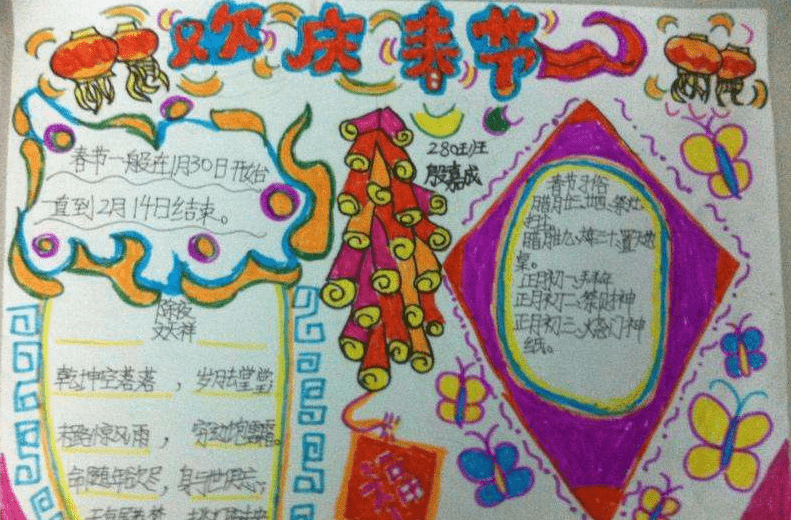 欢庆春节
春节一般在1月30日开始
直到2月14日结束。
280班
殷嘉成
除夜
文天祥
乾坤空落落，岁月去堂堂；
末路惊风雨，穷边饱雪霜。
命随年欲尽，身与世俱忘；
春节习俗
腊月廿三、廿四、祭灶
扫尘
腊月廿九、三十、置天地
桌。
正月初一、拜年
正月初二、祭财神
正月初三、烧门神
纸。